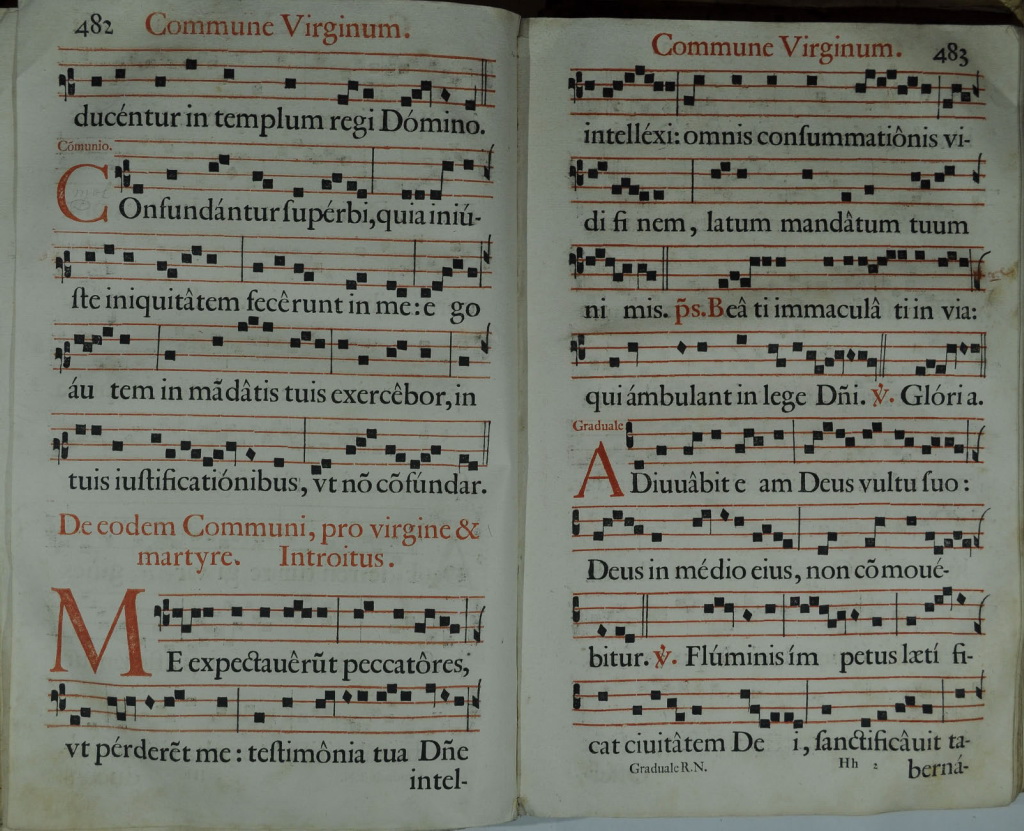 482 Commune Virginum.
ducéntur in templum regi Dómino.
Cómunio.
COnfundántur ſupérbi, quia iniú-
ſte iniquitâtem fecêrunt in me: e go
áu tem in mãdâtis tuis exercêbor, in
tuis iuſtificatiónibus, vt nõ cõfúndar.
De eodem Communi, pro virgine &
martyre. Introitus.
ME expectauêrũt peccatôres,
vt pérderẽt me: teſtimônia tua Dñe
intel-
Commune Virginum. 483
intelléxi: omnis conſummatiônis vi-
di fi nem, latum mandâtum tuum
ni mis. p̃s. Beâ ti immaculâ ti in via:
qui ámbulant in lege Dñi. ℣. Glóri a.
Graduale
ADiuuâbit e am Deus vultu ſuo:
Deus in médio eius, non cõmoué-
bitur. ℣. Flúminis ím petus lætí fi-
cat ciuitâtem De i, ſanctificâuit ta-
Graduale R.N. Hh 2 berná-